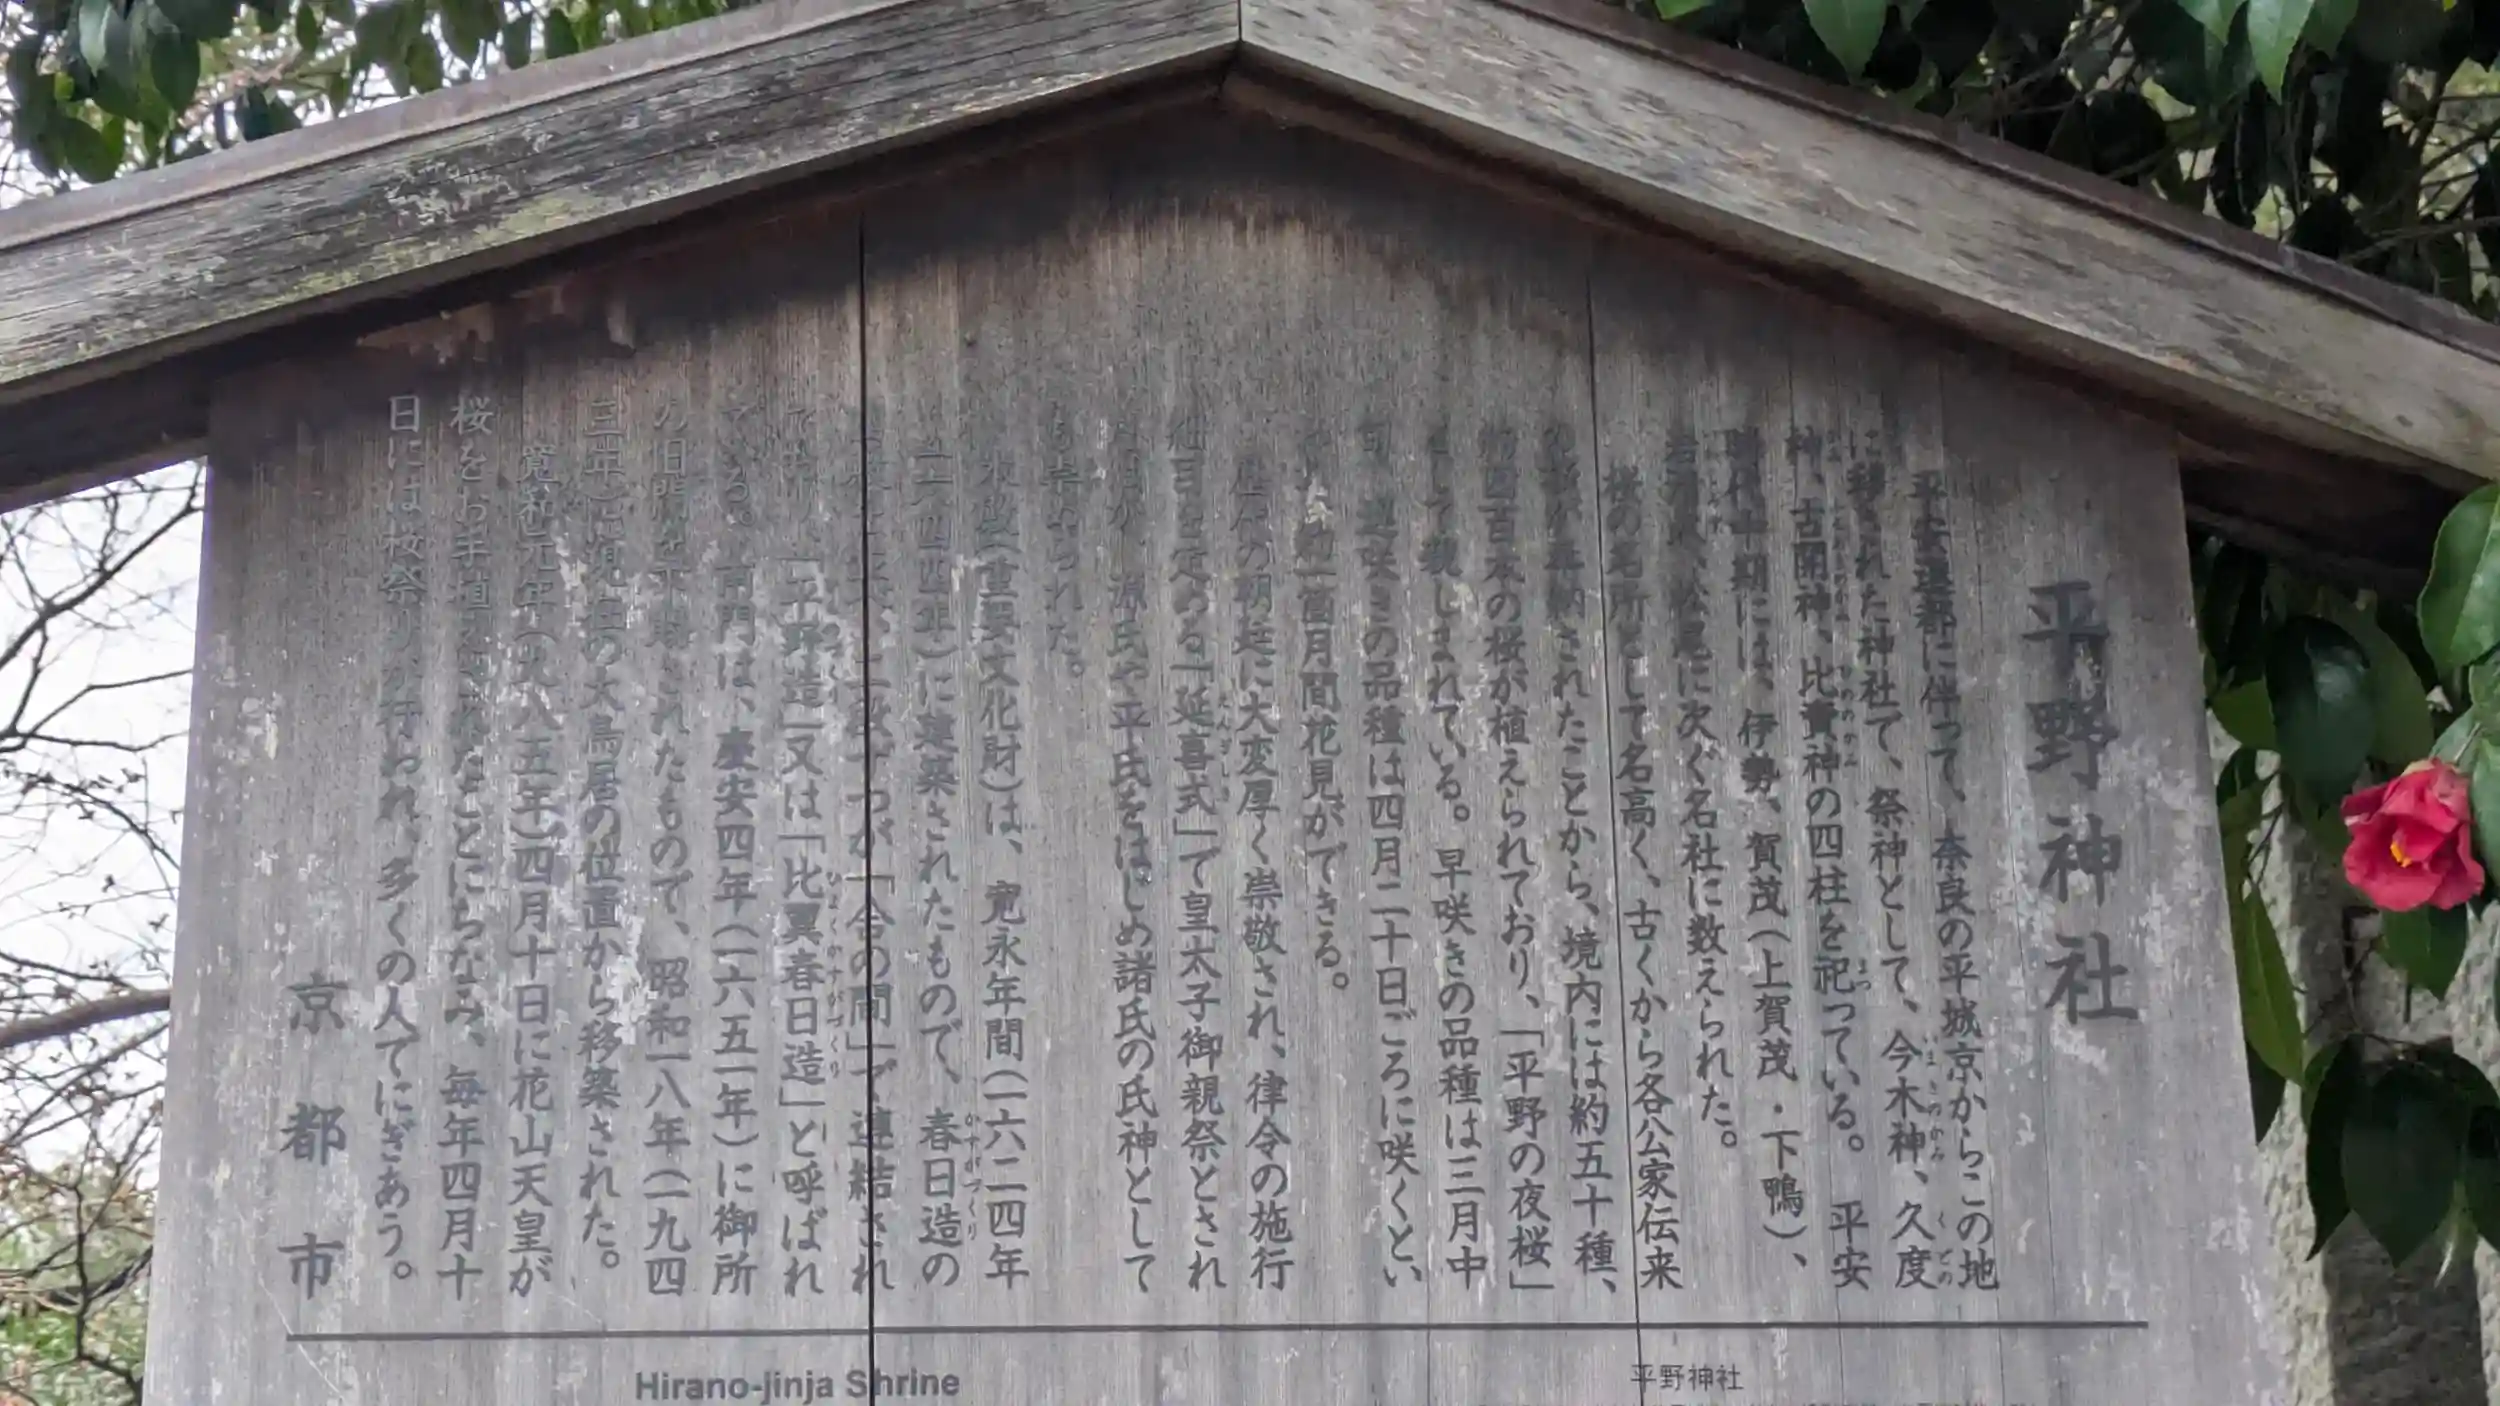 平野神社
平安遷都に伴って、奈良の平城京からこの地
に移された神社で、祭神として、今木神、久度
神、古開神、比賣神の四柱を祀っている。平安
時代中期には、伊勢、賀茂(上賀茂・下鴨)、
石清水、松尾に次ぐ名社に数えられた。
桜の名所として名高く、古くから各公家伝来
の桜が奉納されたことから、境内には約五十種、
約四百本の桜が植えられており、「平野の夜桜」
として親しまれている。早咲きの品種は三月中
旬、遅咲きの品種は四月二十日ごろに咲くとい
われ、約一箇月間花見ができる。
歴代の朝廷に大変厚く崇敬され、律令の施行
細目を定める「延喜式」で皇太子御親祭とされ
たほか、源氏や平氏をはじめ諸氏の氏神として
も崇められた。
本殿(重要文化財)は、寛永年間(一六二四年
一六四四年)に建築されたもので、春日造の
二殿づつが「合の間」で連結され
ており、「平野造」又は「比翼春日造」と呼ばれ
ている。南門は、慶安四年(一六五一年)に御所
の旧門を下賜されたもので、昭和一八年(一九四
三年)に現在の大鳥居の位置から移築された。
寛和元年(九八五年)四月十日に花山天皇が
桜をお手植えされたことにちなみ、毎年四月十
日には桜祭りが行われ、多くの人でにぎあう。
京都市
Hirano-jinja Shrine
平野神社